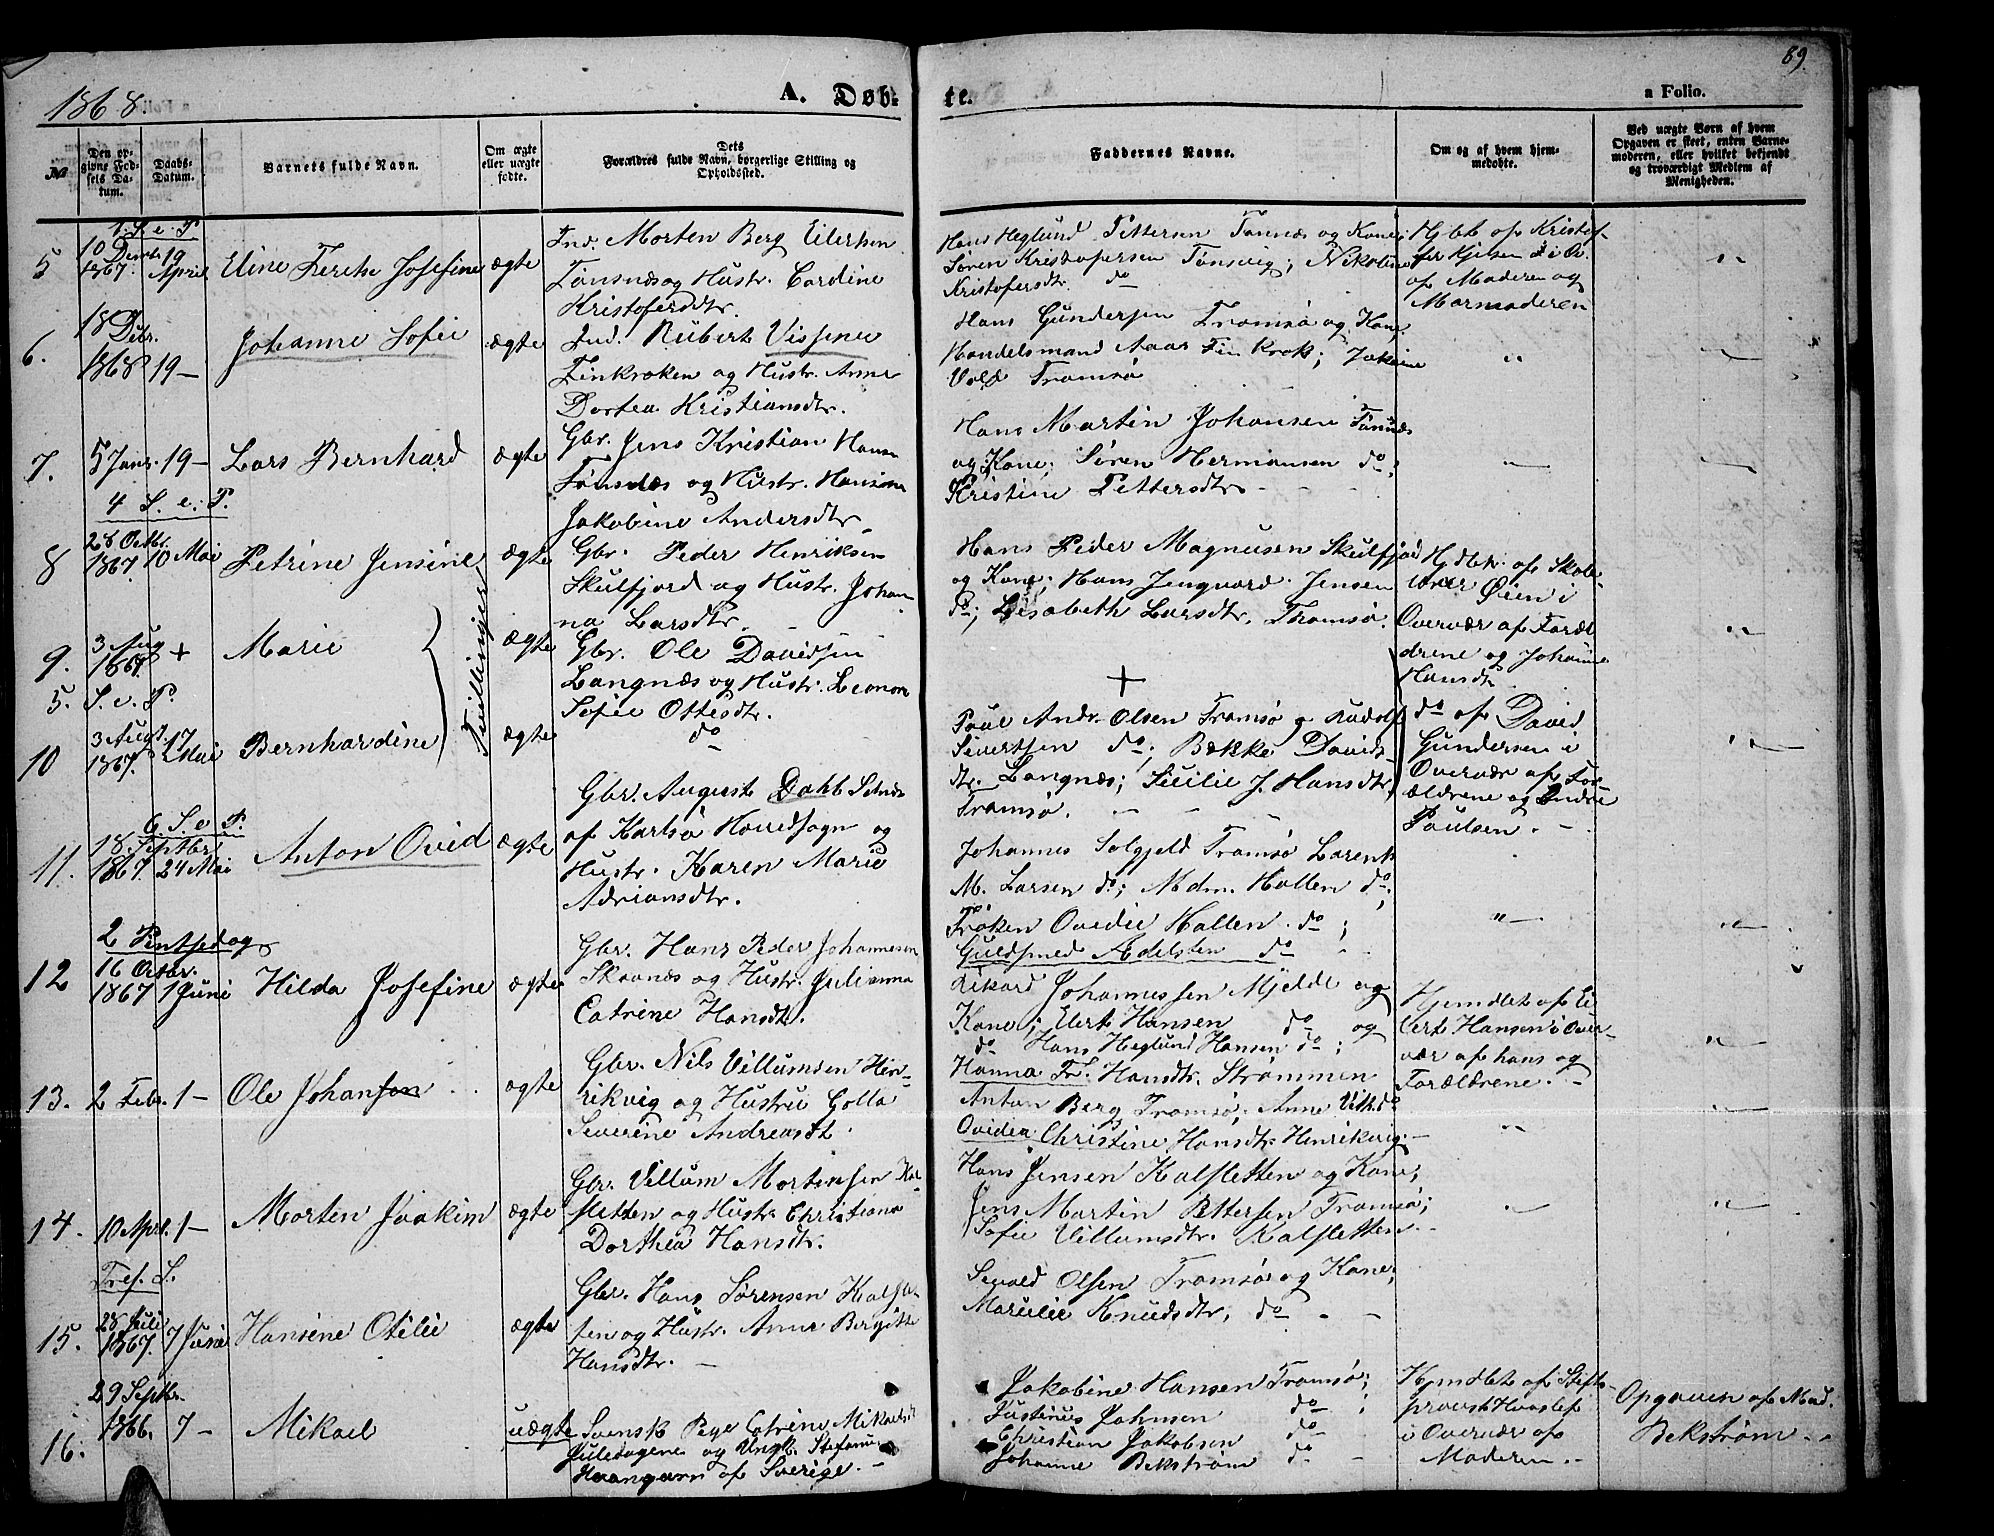 1868.
A. Døb-
te.
a Folio.
89.
№
Den op-
givne Fød-
sels Da-
tum.
Daabs-
Datum.
Barnets fulde Navn.
Om ægte
eller uægte
fødte.
Dets
Forældres fulde Navn, borgerlige Stilling og
Opholdssted.
Faddernes Navne.
Om og af hvem hjem-
medøbte.
Ved uægte Børn af hvem
Opgaven er skeet, enten Barne-
moderen, eller hvilket bekjendt
og troværdigt Medlem af
Menigheden.
1. S. e. P
5
10 Decbr.
1867.
19
April
Eline Josefine
ægte
Ind. Morten Berg Eilertsen
Tønsnæs og Hustr. Cardine
Kristofersdtr.
Hans Heglund Pettersen Tønsnæs og Kone;
Søren Kristofersen Tønsvig; Nikoline
Kristofersdtr. do
Hjdbt af Kristof-
fer
af Moderen og
Mormoderen
6.
18 Debr.
1868
19 –
Johanne Sofie
ægte
Ind. Rubert Vissener
Finkroken og Hustr. Anne
Dortea Kristiansdtr.
Hans Gundersen Tromsø og Kone,
Handelsmand Aaar Finkrok;
Vold Tromsø
7.
5 Janr.
19 –
Lars Bernhard
ægte
Gbr. Jens Kristian Hansen
Tønsnæs og Hustr. Hansina
Jakobine Andersdtr.
Hans Martin Johansen Tønsnæs
og Kone; Søren Hermansen do;
Kristine Pettersdtr.
4 S. e. P.
8
28 Octbr.
1867.
10 Mai
Petrine Jensine
ægte
Gbr. Peder Henriksen
Skulfjord og Hustr. Johan-
na Larsdtr.
Hans Peder Magnusen Skulfjord
og Kone; Hans Jengvard Jensen
do; Lisabeth Larsdtr. Tromsø.
Hjdbt. af Skole-
lærer Øien i
Overvær af Foræl-
drene og Johanne
Hansdt.
9.
3 Aug
1867.
+
Marie
Tvillinger
ægte
Gbr. Ole Davidsen
Langnæs og Hustr. Leonore
Sofie Ottesdtr.
+
5. S. e. P.
10
3 Augt.
1867.
17
Mai
Bernhardine
ægte
do
Paul Andr. Olsen Tromsø og Rudolf
Sivertsen do; Bække Davids-
dtr. Langnæs; Sicilie J. Hansdtr.
Tromsø.
do af David
Gundersen i
Overvær af For-
ældrene og Andre
Paulsen.
6. S. e P.
11.
18 Septbr
1867.
24 Mai
Anton Ovid
ægte
Gbr. August Dahl
af Karlsø Hovedsogn og
Hustr. Karen Marie
Adriansdtr.
Johannes Solgjeld Tromsø Larents
M. Larsen do; Mdm. Hallen do;
Frøken Ovedie Hallen. do;
Guldsmed Adelsten do
2 Pintsedag
12
16 Octbr.
1867
1 Juni
Hilda Josefine
ægte
Gbr. Hans Peder Johannesen
Skaanæs og Hustr. Julianna
Catrine Hansdt.
Rikard Johannessen Mjelde og
Kone; Elert Hansen do og
do Hans Heglund Hansen do;
Hanna Fr. Hansdtr. Strømmen
Hjemdbt af Ei-
lert Hansen i Over-
vær af hans og
Forældrene.
13.
2 Febr.
1 –
Ole Johan
ægte
Gbr. Nils Villumsen Hen-
rikvig og Hustru Golla
Severine Andreasdt.
Anton Berg Tromsø; Anne Vilh. do
Ovidea Christine Hansdtr. Henrikvig.
14.
10 Apr.
1 –
Morten Joakim
ægte
Gbr. Villum Mortensen Kal-
sletten og Hustr. Christiana
Dorthea Hansdtr.
Hans Jensen Kalsletten og Kone;
Jens Martin Pettersen Tromsø;
Sofie Villumsdtr. Kalsletten.
Tref. S.
15.
28 Juli
1867.
7 Juni
Hansine Otilie
ægte
Gbr. Hans Sørensen Kalsle-
ten og Hustr. Anne Bergitte
Hansdtr.
Sevald Olsen Tromsø og Kone;
Marulie Knudsdtr. do
16.
29 Septbr.
1866.
7 –
Mikael
uægte
Svensk Pige Catrine Mikaelsdt.
og Ungk. Stefanus
af Sverige.
Jakobine Hansen Tromsø;
Justinus Johnsen do;
Christian Jakobsen do
Johanne Bekstrøm do
Hjemdbt af Stifts-
provst
i Overvær af
Moderen.
Opgaven af Mad.
Bekstrøm.